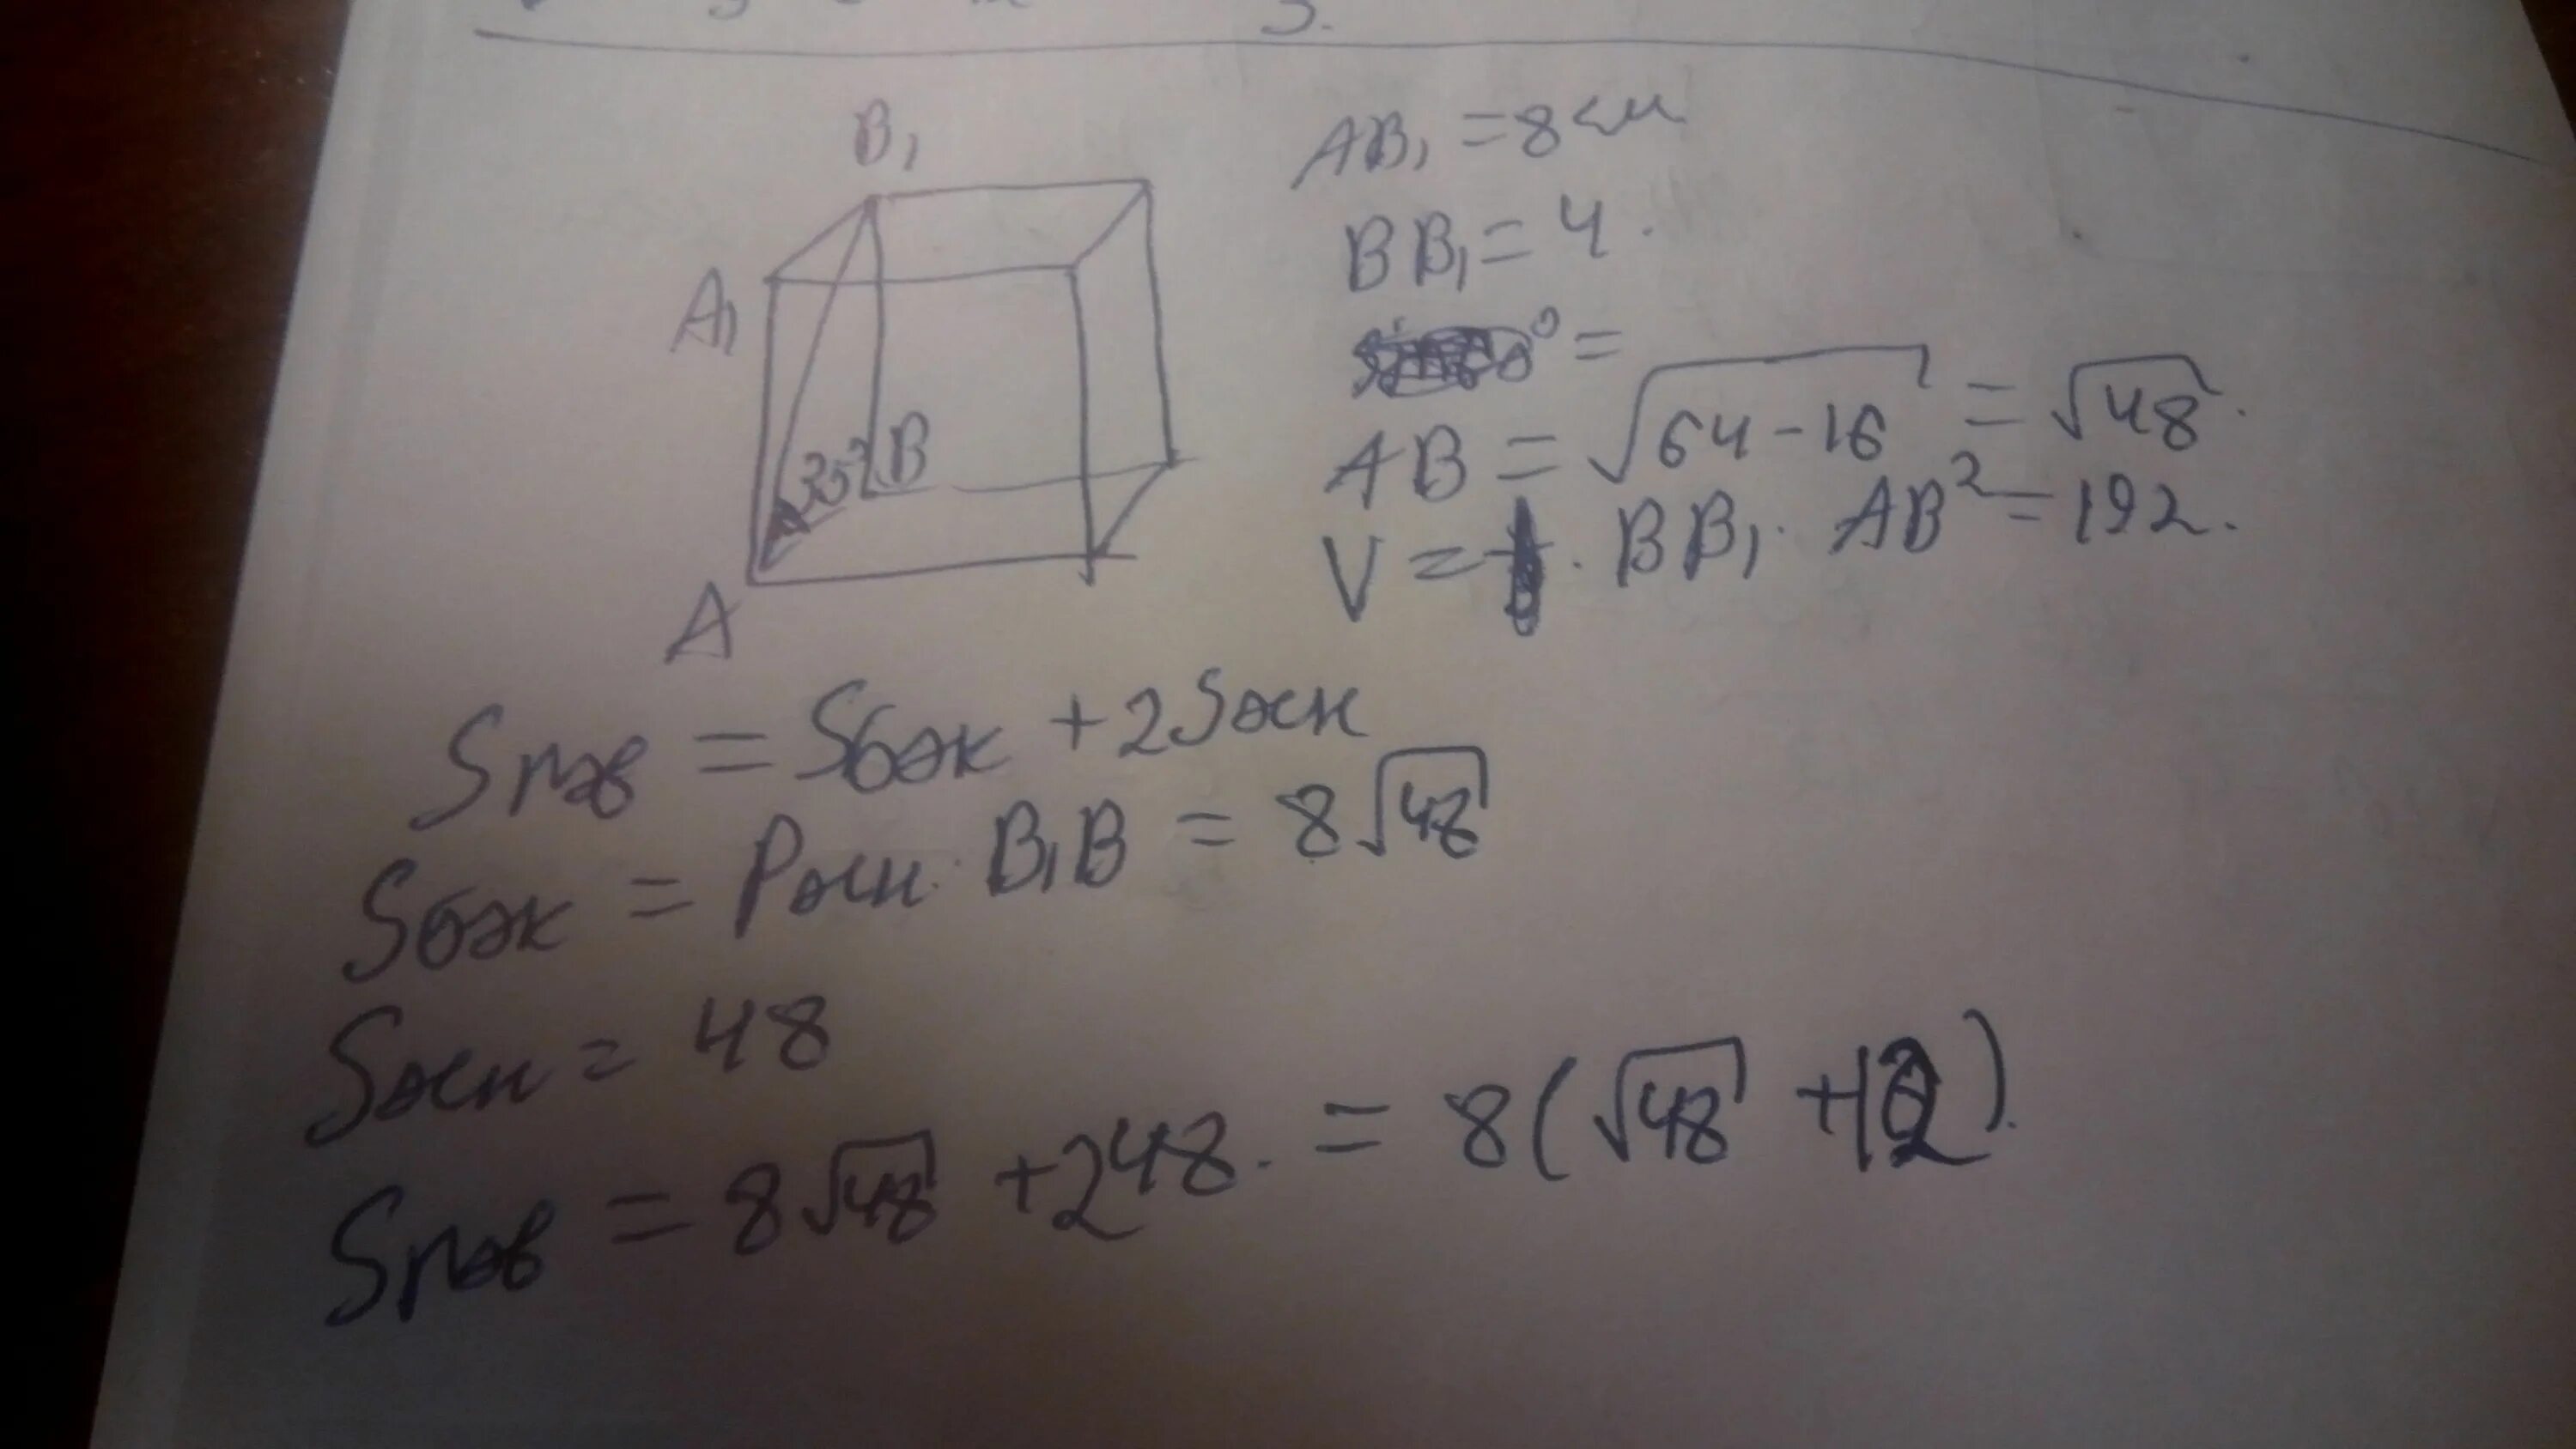 B₁
A₁
30°
B
A
AB₁ = 8 см
BB₁ = 4.
° =
AB = √64-16 = √48.
V = · BB₁ · AB² = 192.
Sпов = Sбок + 2Sосн
Sбок = Pосн · B₁B = 8√48
Sосн = 48
Sпов = 8√48 + 2 48. = 8(√48 + 12).